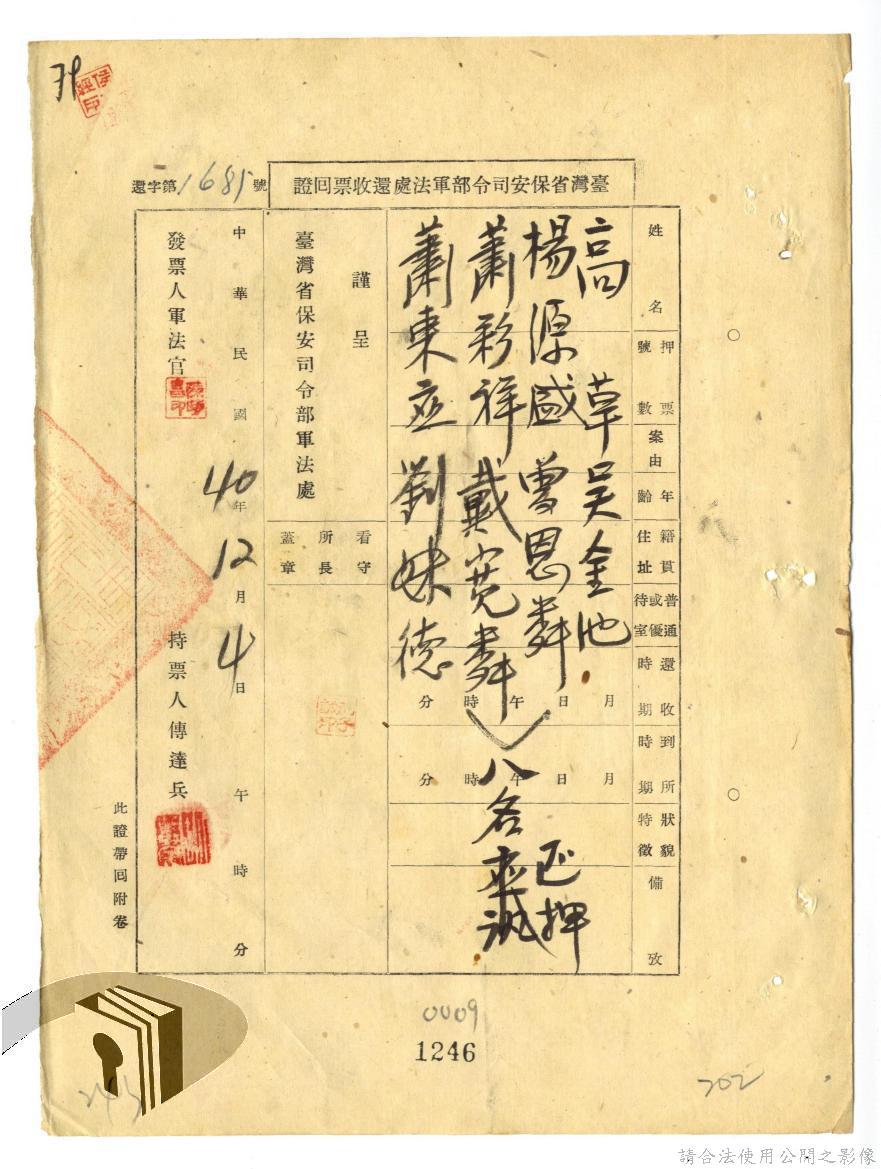 臺灣省保安司令部軍法處還收票回證
還字第1685號
姓名
押票號數
案由
年齡
籍貫住址
普通或優待室
還收時期
到所時期
狀貌特徵
備攷
月日午時分
月日午時分
高草 吳金池
楊源盛 曾恩粦
蕭彩祥 戴寬粦
蕭東立 劉妹德
八名
還押
謹呈
臺灣省保安司令部軍法處
看守所長蓋章
中華民國40年12月4日午時分
發票人軍法官
持票人傳達兵
此證帶回附卷
0009
1246
202
請合法使用公開之影像